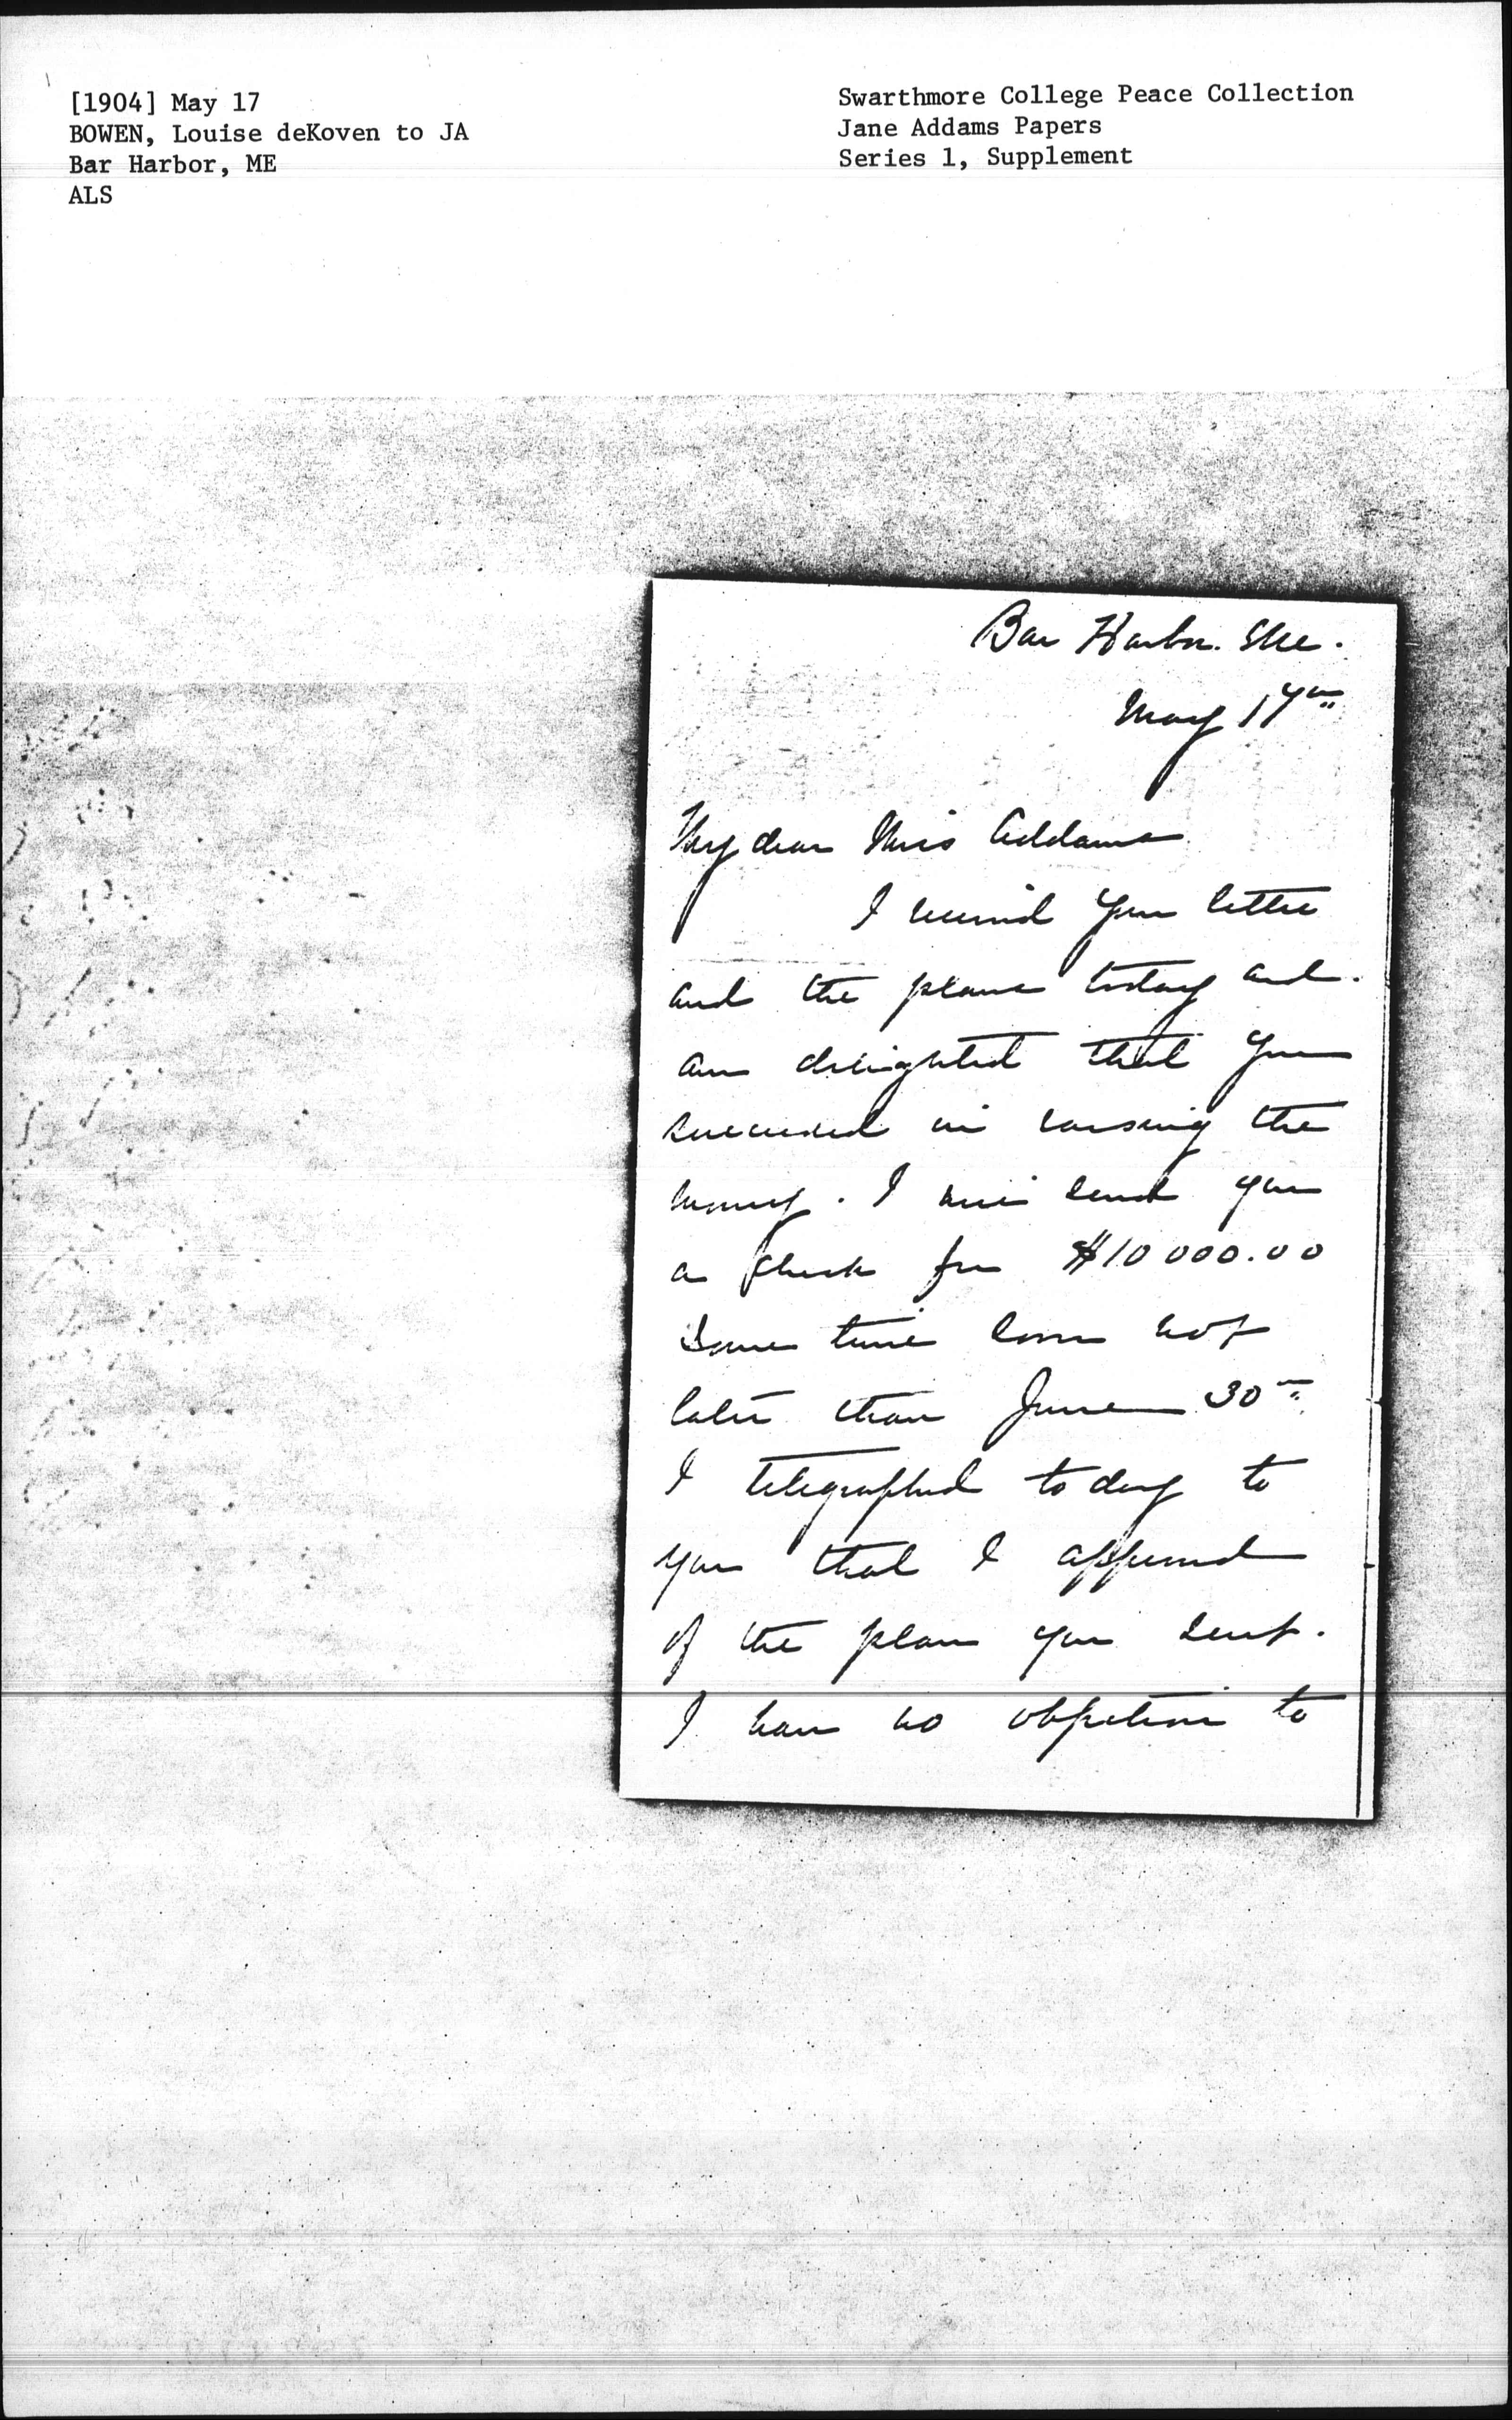 [1904] May 17
BOWEN, Louise deKoven to JA
Bar Harbor, ME
ALS
Swarthmore College Peace Collection
Jane Addams Papers
Series 1, Supplement
Bar Harbor. Me.
May 17th
My dear Miss Addams
I received your letter
and the plans today and
am delighted that you
succeeded in raising the
money. I will send you
a check for $10 000.00
some time soon not
later than June 30th
I telegraphed to day to
you that I approved
of the plan you sent.
I have no objection to